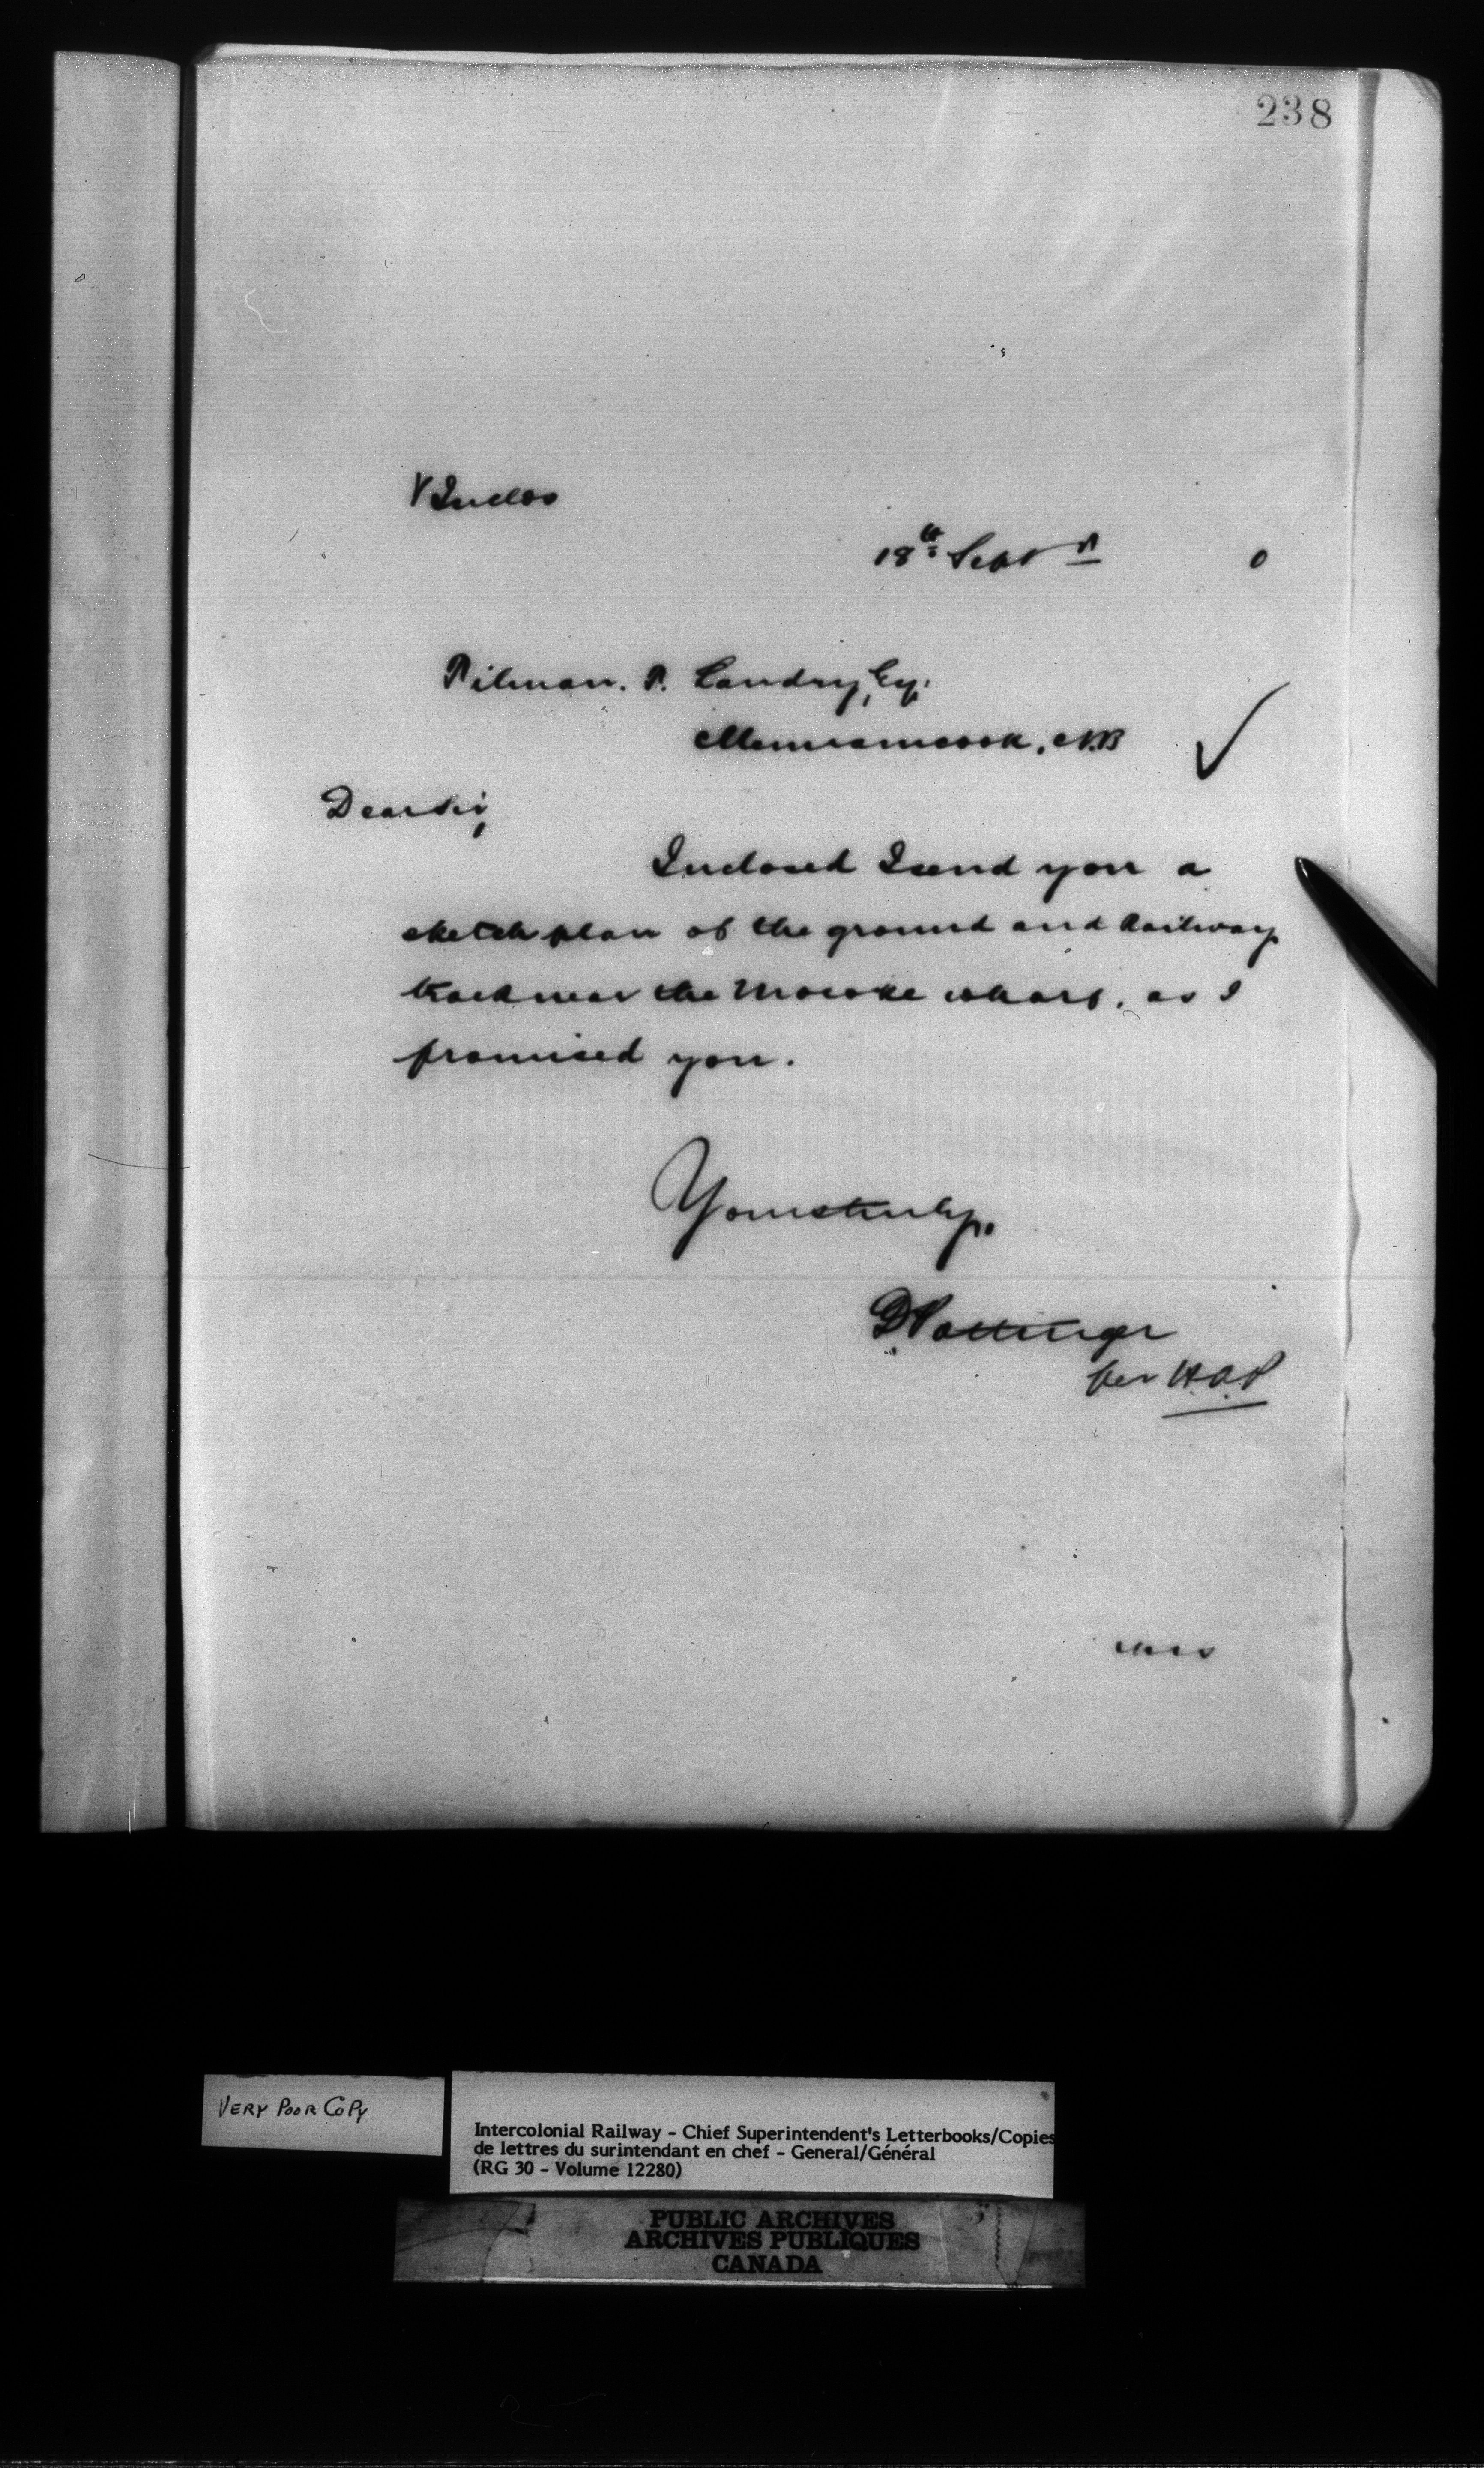 238
Inclos
18th Sept
0
Pilman. P. Landry, Esq.
Memramcook, N.B
Dear Sir,
Inclosed I send you a
sketch plan of the ground and Railway
track near the wharf, as I
promised you.
Yours truly.
D Pottinger
per
VERY POOR COPY
Intercolonial Railway - Chief Superintendent's Letterbooks/Copies
de lettres du surintendant en chef - General/Général
(RG 30 - Volume 12280)
PUBLIC ARCHIVES
ARCHIVES PUBLIQUES
CANADA